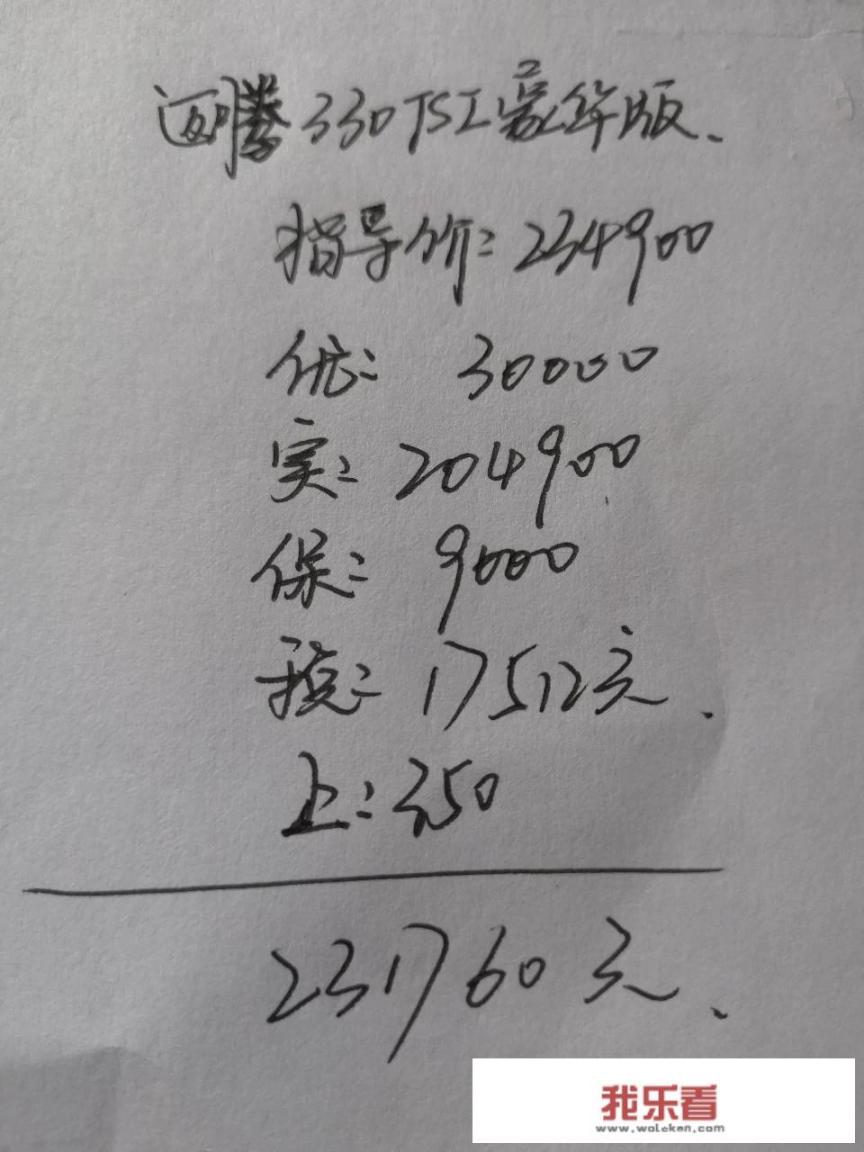 迈腾330TSI豪华版、
指导价：234900
优：30000
实：204900
保：9000
税：17512元.
上：350
231760元、
我乐看
www.woleken.com